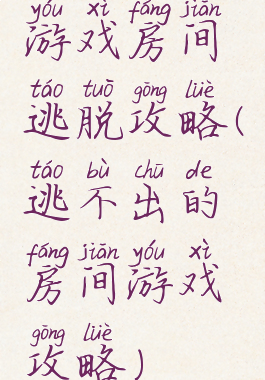 yóu xì fáng jiān
游戏房间
táo tuō gōng lüè
逃脱攻略(
táo bù chū de
逃不出的
fáng jiān yóu xì
房间游戏
gōng lüè
攻略)